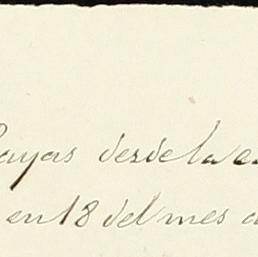 ayas desde la
en 18 del mes